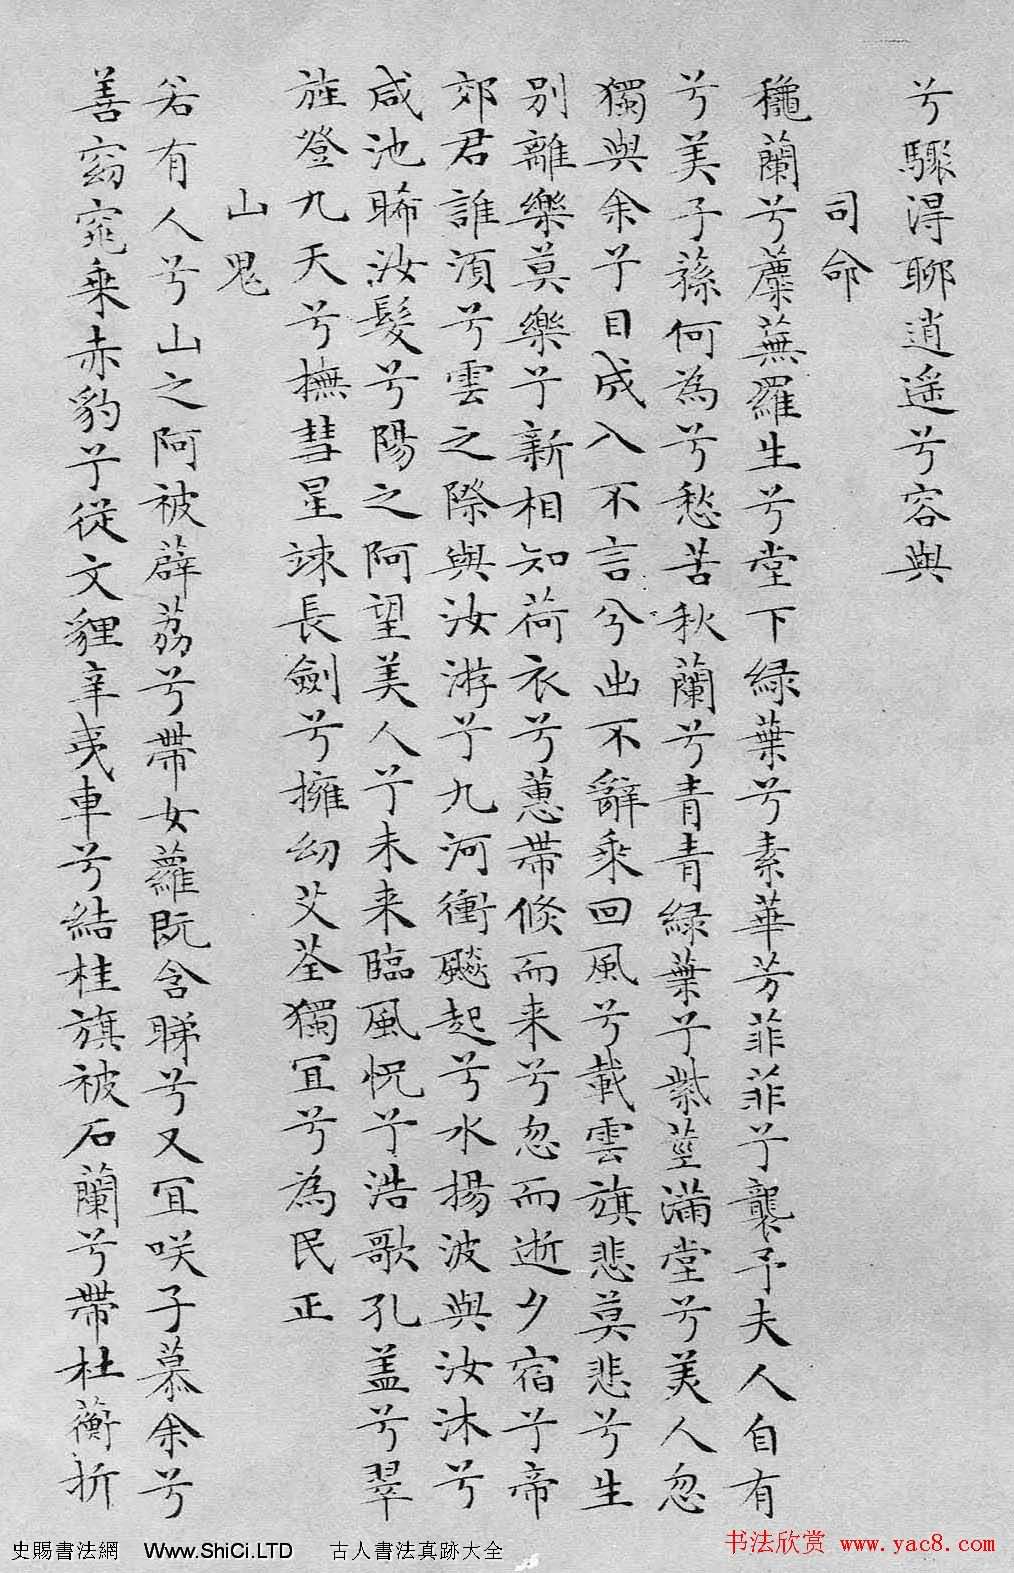 兮驟得聊逍遥兮容與
司命
穐蘭兮蘪蕪羅生兮堂下緑葉兮素華芳菲菲兮襲予夫人自有
兮美子蓀何為兮愁苦秋蘭兮青青緑葉兮紫莖滿堂兮美人忽
獨與余兮目成入不言兮出不辭乘回風兮載雲旗悲莫悲兮生
别離樂莫樂兮新相知荷衣兮蕙帶倏而来兮忽而逝夕宿兮帝
郊君誰須兮雲之際與汝游兮九河衝飈起兮水揚波與汝沐兮
咸池晞汝髮兮陽之阿望美人兮未来臨風怳兮浩歌孔盖兮翠
旌登九天兮撫彗星竦長劍兮擁幼艾荃獨宜兮為民正
山鬼
若有人兮山之阿被薜荔兮帶女蘿既含睇兮又宜咲子慕余兮
善窈窕乘赤豹兮從文貍辛夷車兮結桂旗被石蘭兮帶杜蘅折
史賜書法網 Www.ShiCi.LTD 古人書法真跡大全
书法欣赏 www.yac8.com